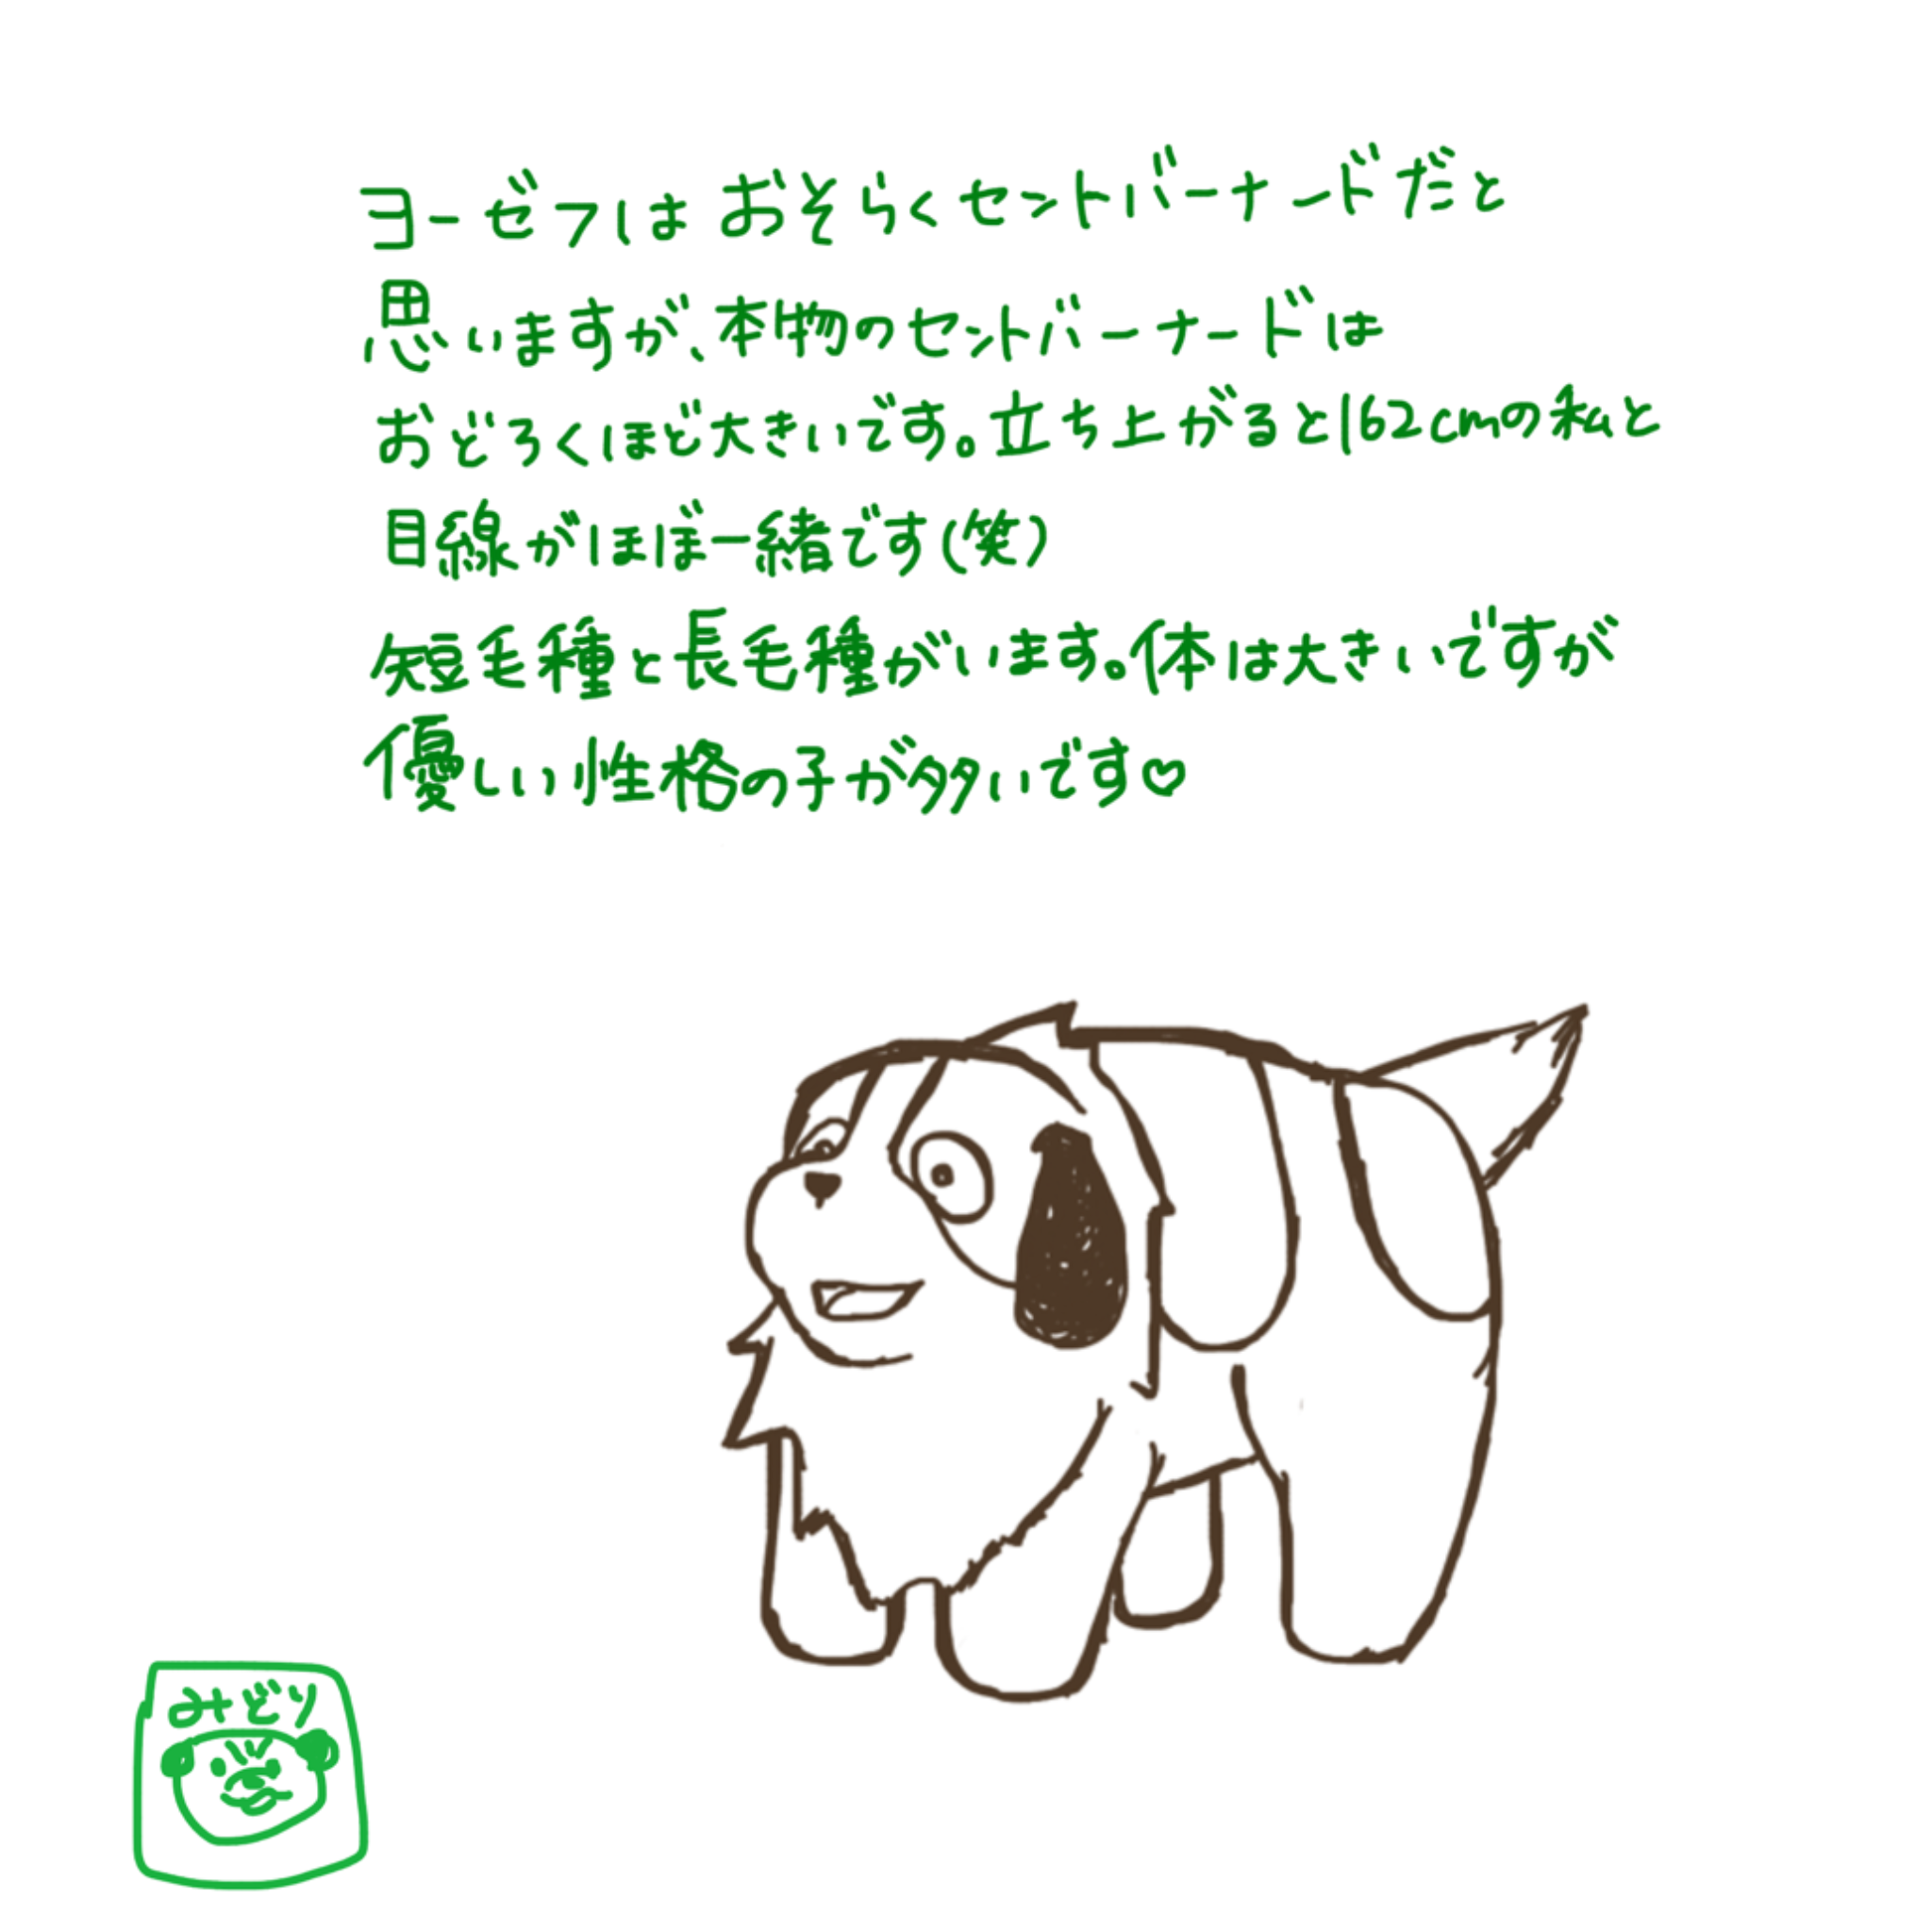 ヨーゼフはおそらくセントバーナードだと
思いますが、本物のセントバーナードは
おどろくほど大きいです。立ち上がると162cmの私と
目線がほぼ一緒です(笑)
短毛種と長毛種がいます。体は大きいですが
優しい性格の子が多いです♡
みどり